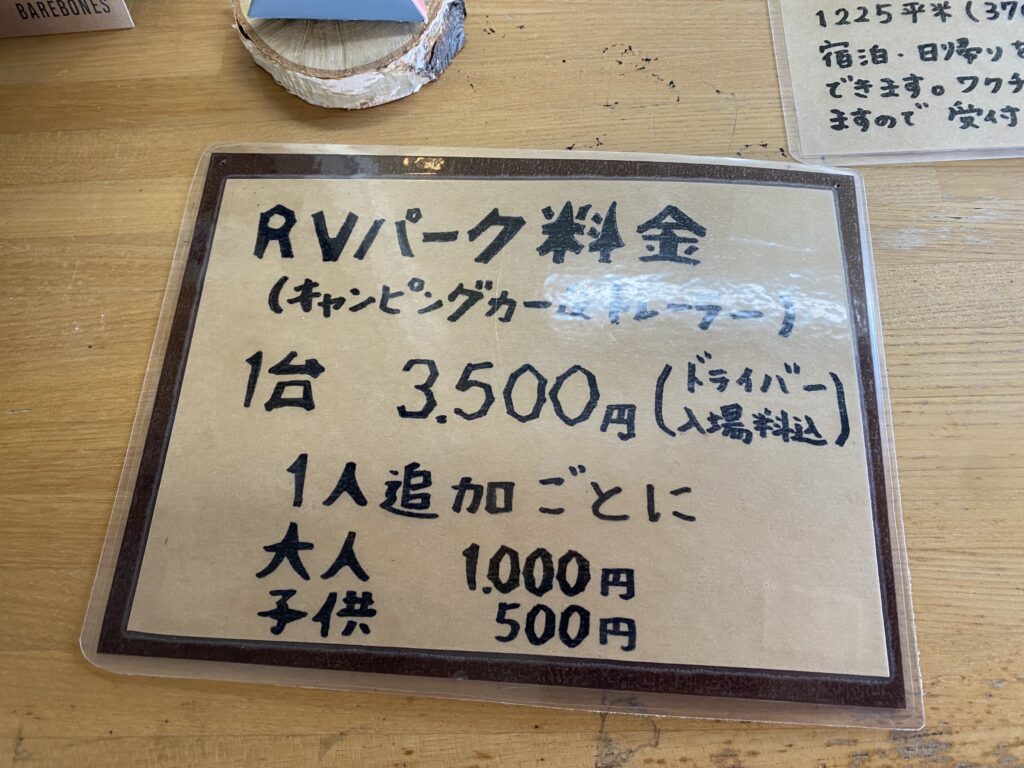 BAREBONES
1225平米(370
宿泊・日帰りを
できます。ワクチ
ますので 受付
RVパーク 料金
(キャンピングカー&トレーラー)
1台 3.500円(ドライバー
入場料込)
1人追加ごとに
大人 1.000円
子供 500円